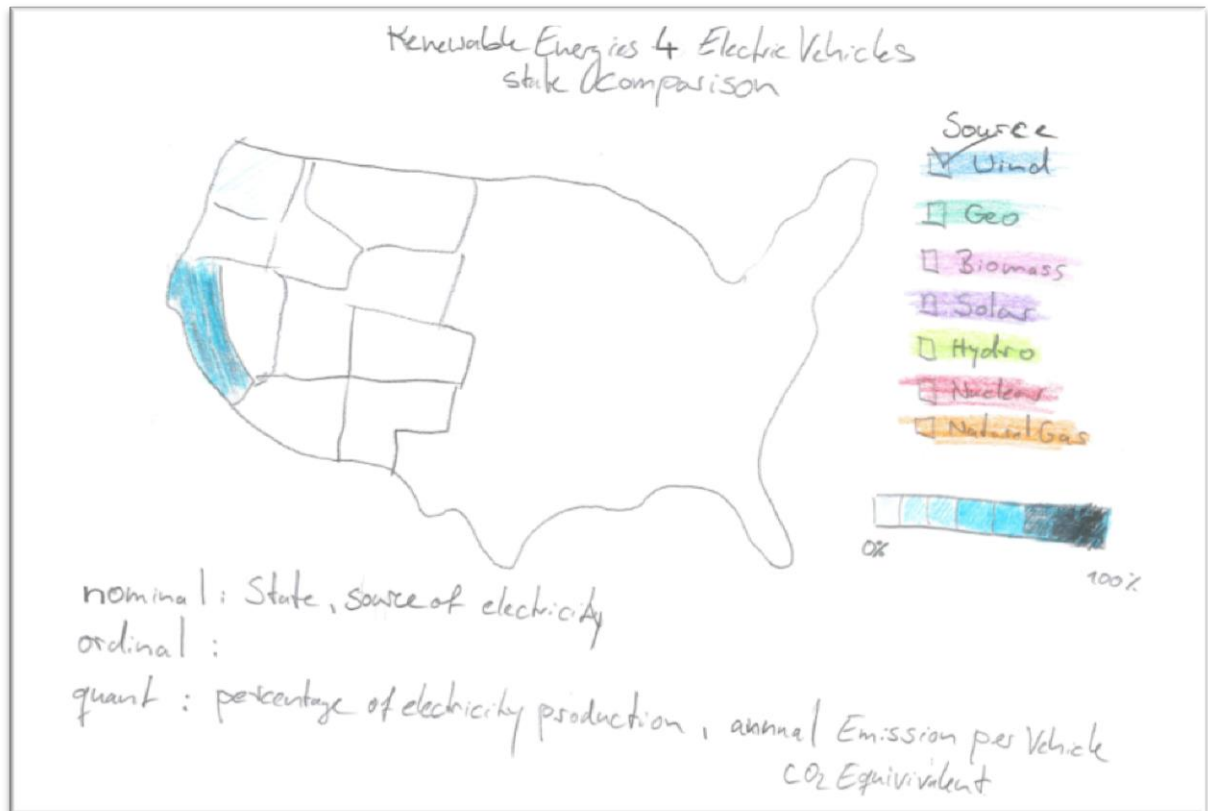 Renewable Energies 4 Electric Vehicles
state Comparison
Source
Wind
Geo
Biomass
Solar
Hydro
Nuclear
Natural Gas
0%
100%
nominal : State, source of electricity
ordinal :
quant : percentage of electricity production, annual Emission per Vehicle
CO2 Equivivalent